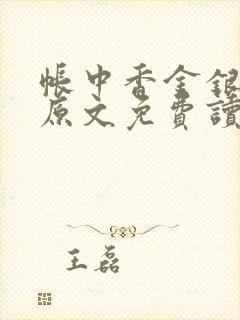 帳中香金銀
原文免費讀
王磊